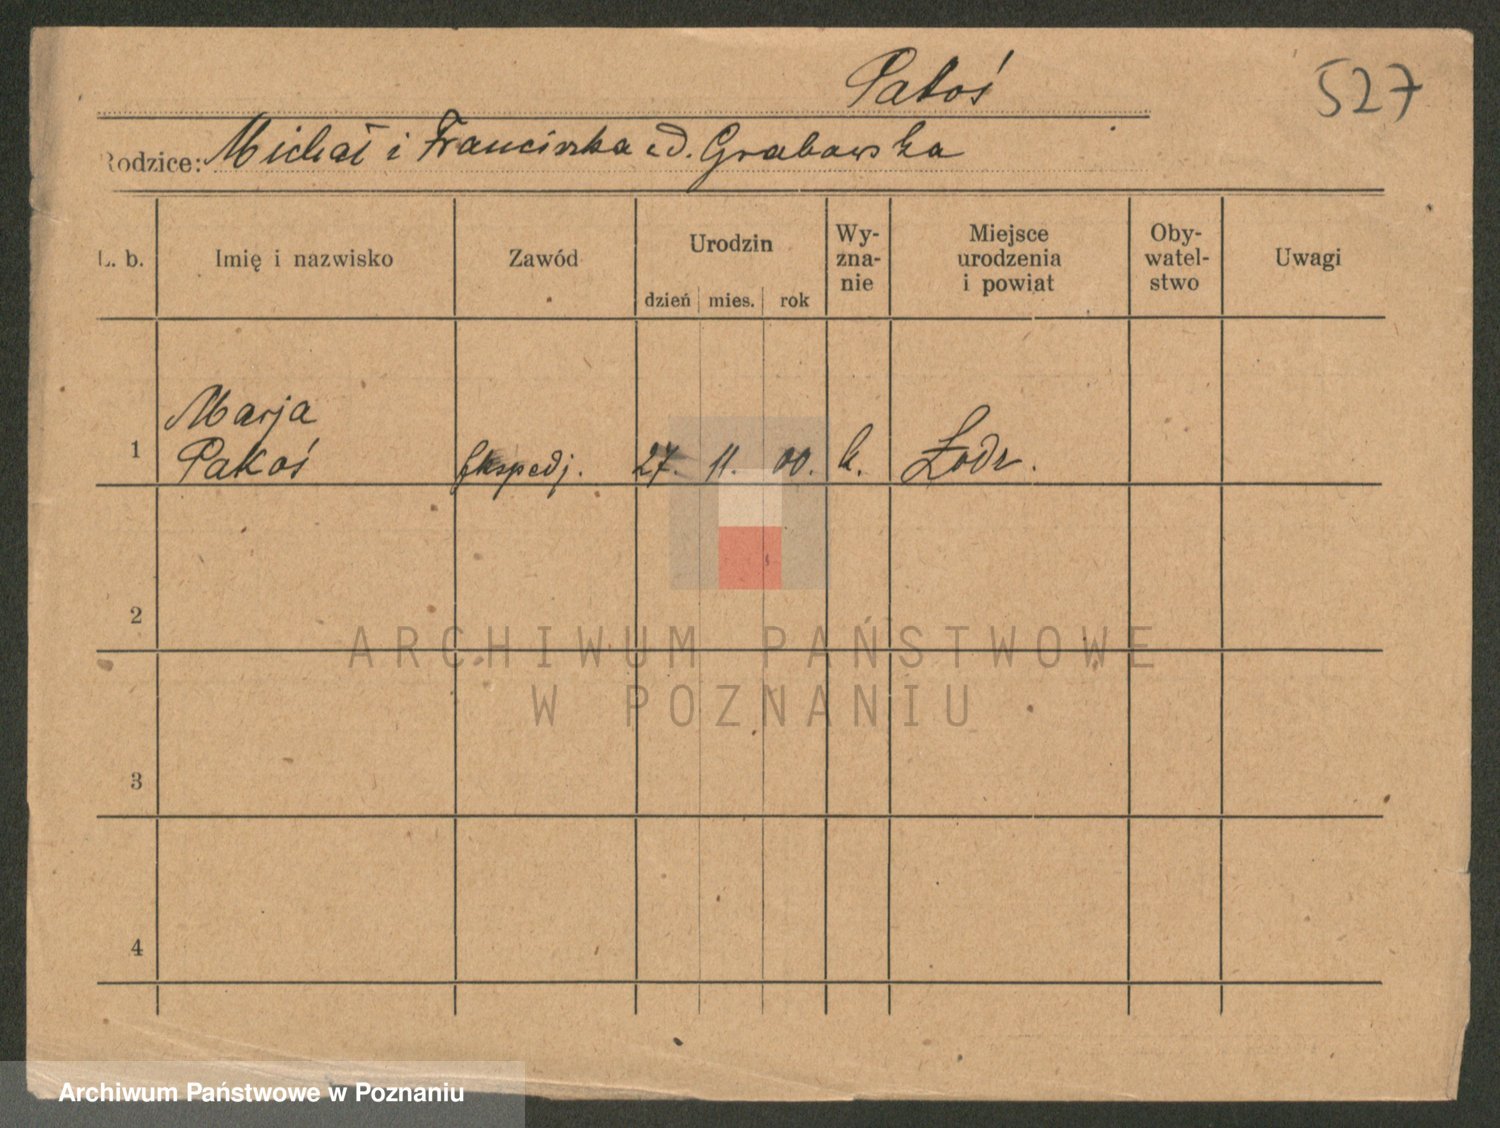 Pakoś
527
Rodzice: Michał i Franciszka z d. Grabowska
L. b. Imię i nazwisko Zawód Urodzin dzień mies. rok Wy-zna-nie Miejsce urodzenia i powiat Oby-watel-stwo Uwagi
Marja
1 Pakoś Ekspedj. 27. 11. 00. k. Łódź.
2
ARCHIWUM PAŃSTWOWE
W POZNANIU
3
4
Archiwum Państwowe w Poznaniu